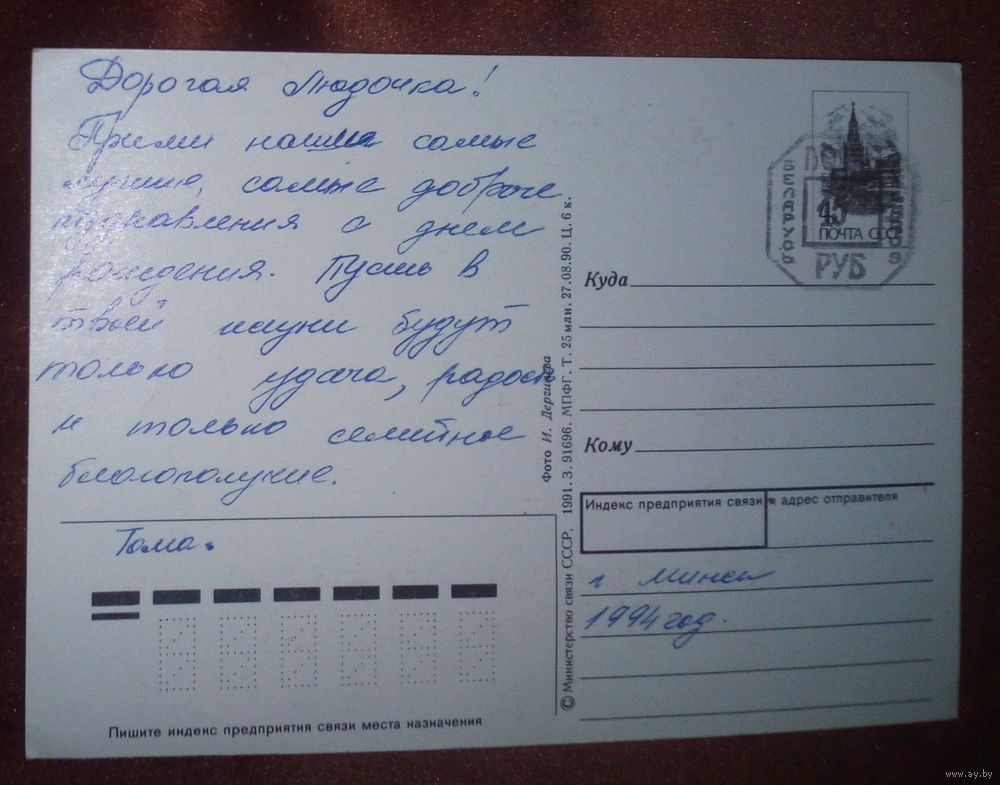 Дорогая Людочка!
Прими наши самые
лучшие, самые добрые
поздравления с днем
рождения. Пусть в
твоей жизни будут
только удача, радость
и только семейное
благополучие.
Тома.
Пишите индекс предприятия связи места назначения
Фото И. Дергилёва
© Министерство связи СССР, 1991. З. 91696. МПФГ. Т. 25 млн. 27.08.90. Ц. 6 к.
БЕЛАРУСЬ
45
ПОЧТА СССР
РУБ
Куда
Кому
Индекс предприятия связи и адрес отправителя
г Минск
1994 год.
www.ay.by